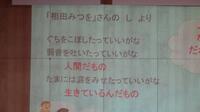 「相田みつを」さんの し より
ぐちをこぼしたっていいがな
弱音を吐いたっていいがな
人間だもの
たまには涙をみせたっていいがな
生きているんだもの